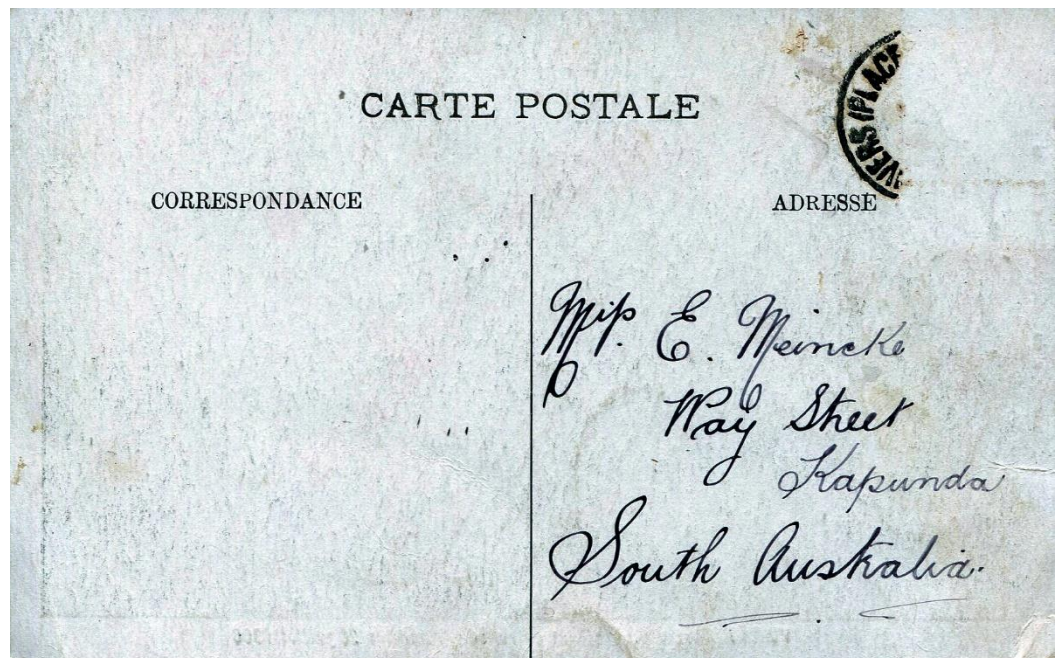 CARTE POSTALE
CORRESPONDANCE
ADRESSE
Miss. E. Meincke
Way Street
Kapunda
South Australia.